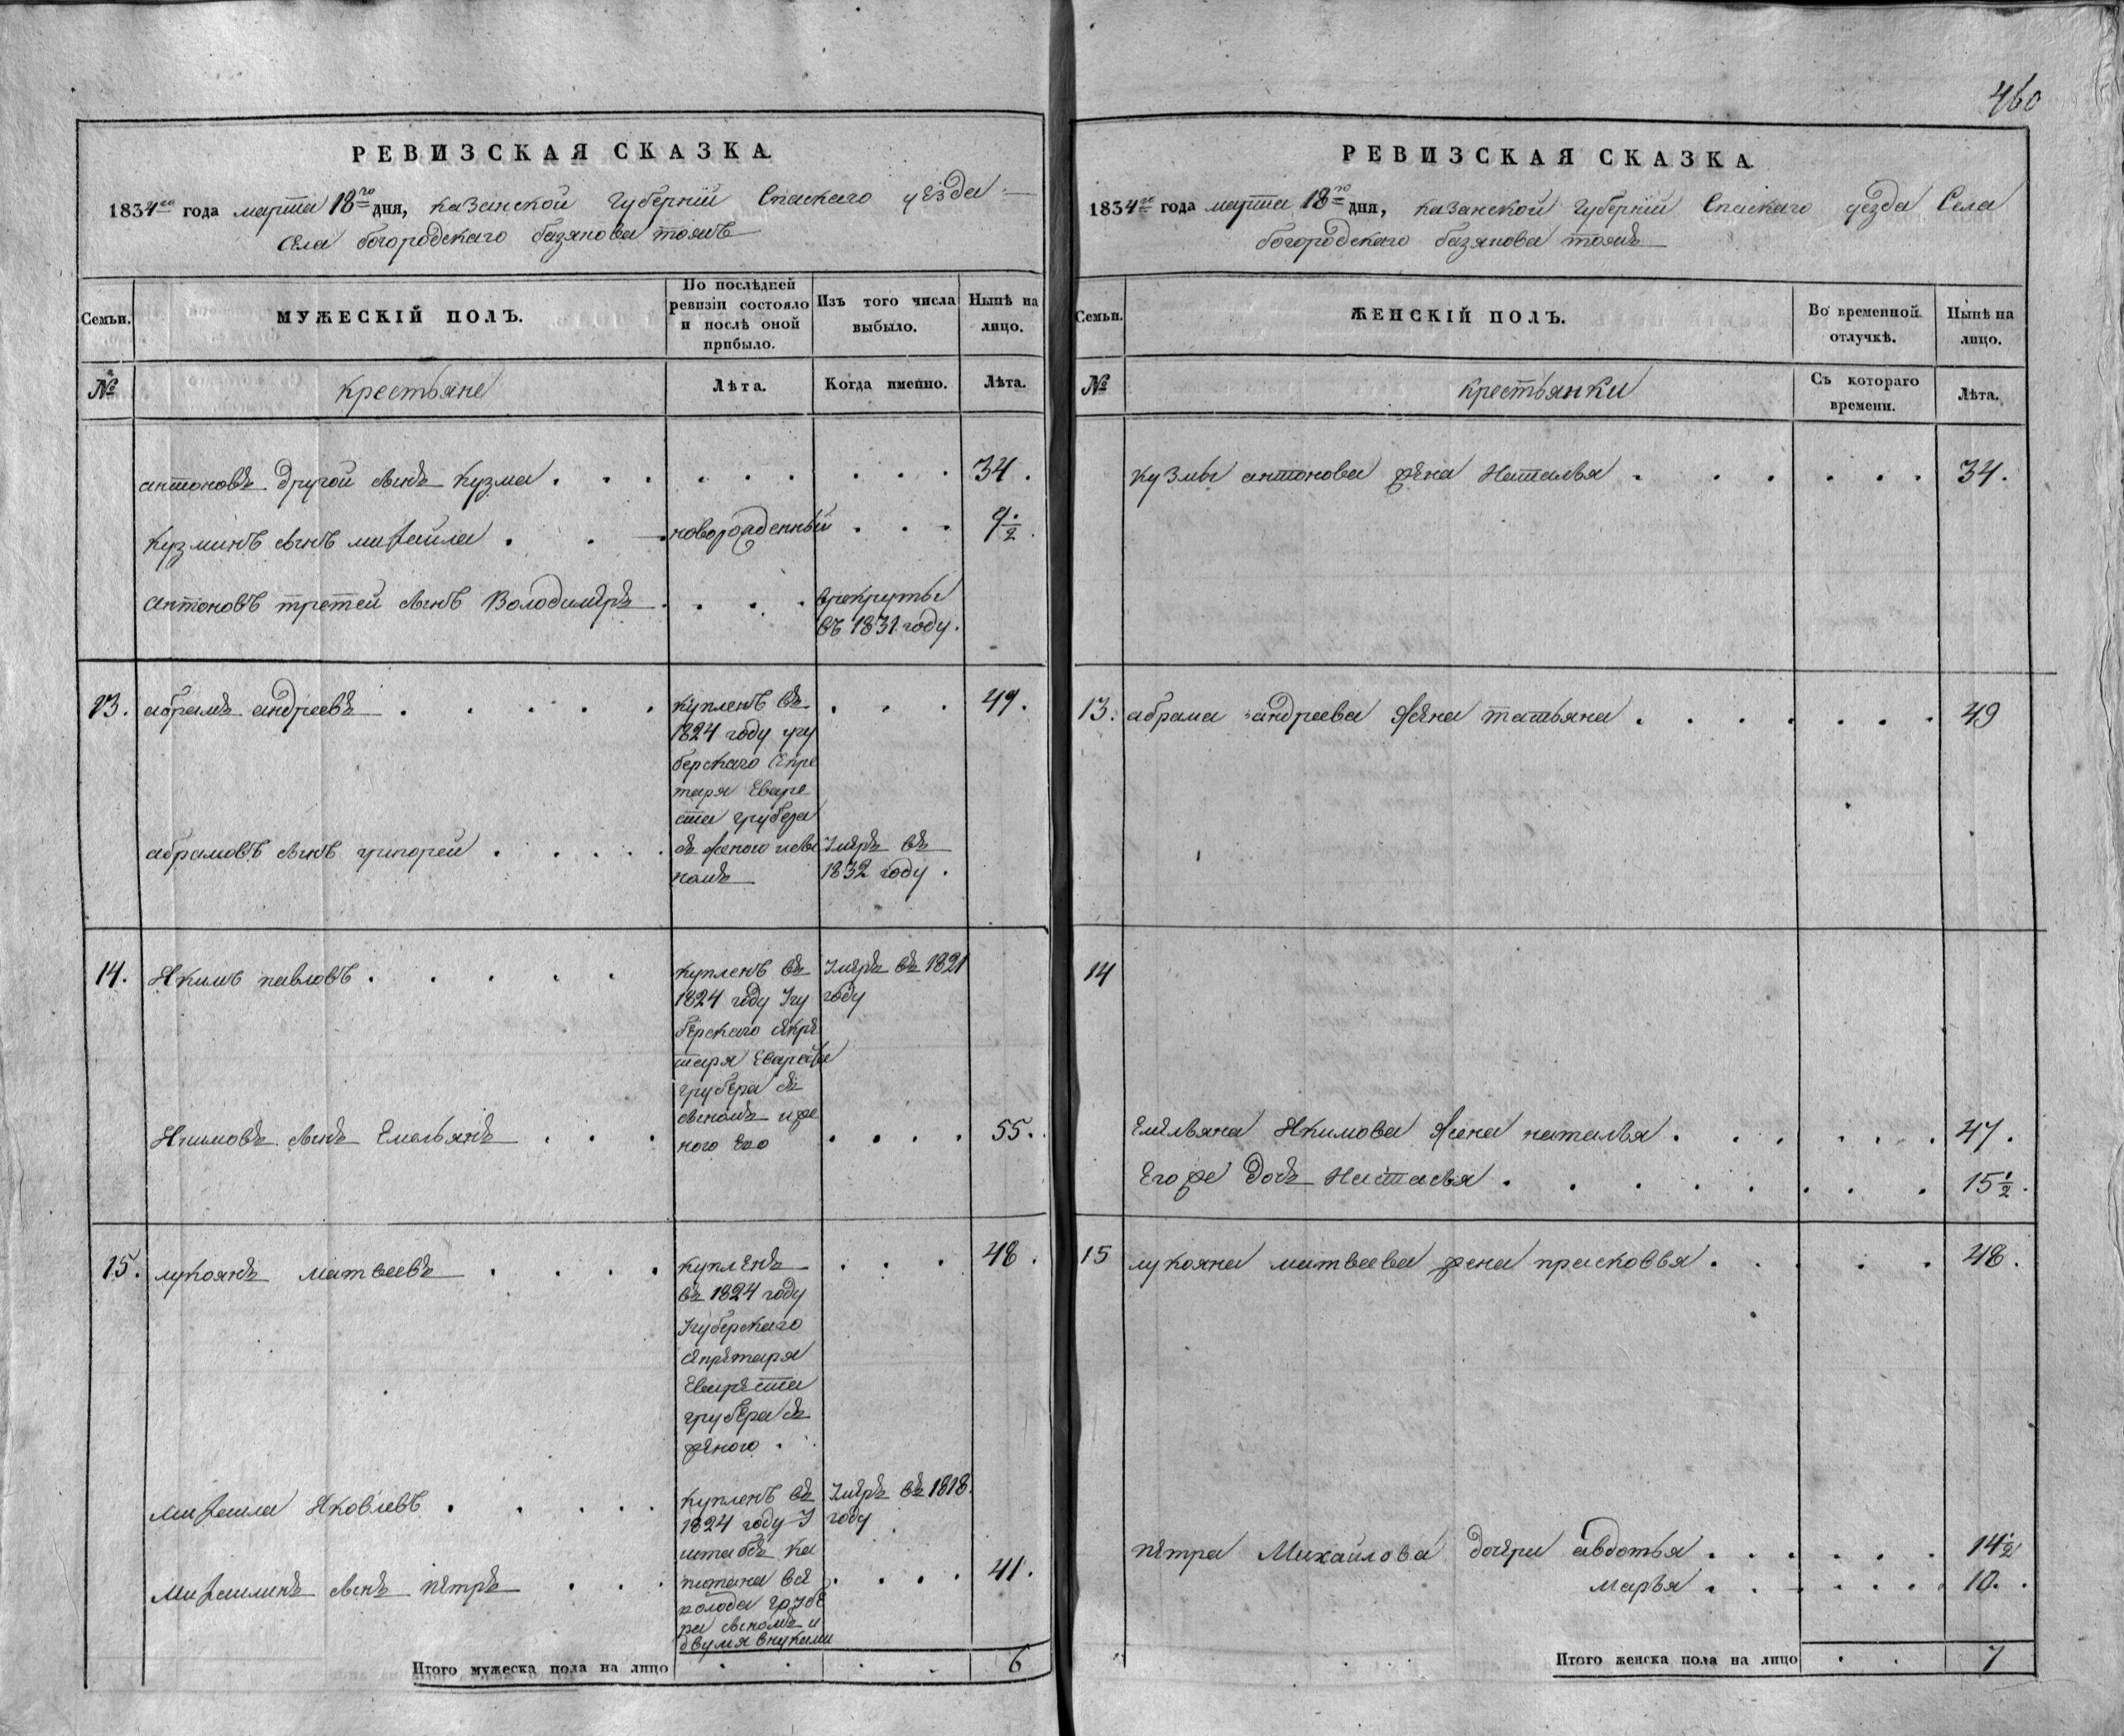 460
РЕВИЗСКАЯ СКАЗКА
1834го года марта 18го дня, казанской Губернiй Спаскаго уѣзда
Села богородскаго базянова тожъ
Семьи.
МУЖЕСКIЙ ПОЛЪ.
По послѣдней ревизiи состояло и послѣ оной прибыло.
Изъ того числа выбыло.
Нынѣ на лицо.
№
крестьяне
Лѣта.
Когда именно.
Лѣта.
антоновъ другой сынъ Кузма . . . 34.
Кузминъ сынъ михайла . . новорожденный . . . 9 1/2.
антоновъ третей сынъ Володимеръ . . . врекруты
въ 1831 году.
13. абрамъ андреевъ . . . . . купленъ въ . . . 49.
1824 году угу
берскаго секре
таря Еваре
ста грубера
абрамовъ сынъ григорей . . . . . съ женою исы Умеръ въ
номъ 1832 году.
14. Якимъ павловъ . . . . . купленъ въ Умеръ въ 1821
1824 году Угу году
берскаго секре
таря Евареста
грубера съ
сыномъ иже
Якимовъ сынъ Емельянъ . . . ною Его . . . . 55.
15. лукоянъ матвеевъ . . . . купленъ . . . 48.
въ 1824 году
Угуберскаго
секретаря
Евареста
грубера съ
женою . .
михаила Яковлевъ . . . . . купленъ въ Умеръ въ 1818.
1824 году У году
штабсъ ка
михаилинъ сынъ петръ . . . питана все . . . . 41.
волода грубе
ра сыномъ и
двумя внуками
Итого мужеска пола на лицо . . . . 6
РЕВИЗСКАЯ СКАЗКА
1834го года марта 18го дня, казанской Губернiй Спаскаго уезда Села
богородскаго базянова тожъ
Семьи.
ЖЕНСКIЙ ПОЛЪ.
Во временной отлучкѣ.
Нынѣ на лицо.
№
крестьянки
Съ котораго времени.
Лѣта.
кузмы антонова жена Наталья . . . . . . 34.
13. абрама андреева жена татьяна . . . . . . . 49
14
Емельяна Якимова жена наталья . . . . . . . 47.
Его же дочь Настасья . . . . . . . . 15 1/2.
15 лукояна матвеева жена прасковья . . . . . 48.
петра Михайлова дочери авдотья . . . . . . 14 1/2
марья . . . . . . 10. .
Итого женска пола на лицо . . 7